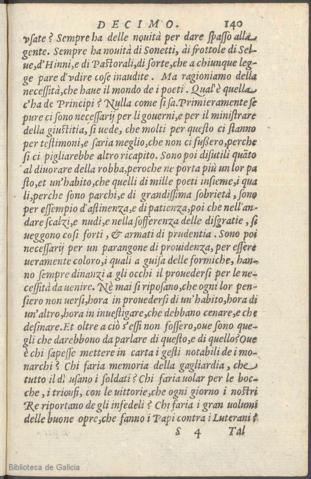 DECIMO. 140
vsate? Sempre ha delle nouità per dare spasso alla
gente. Sempre ha nouità di Sonetti, di frottole di Sel-
ue, d'Hinni, e di Pastorali, di sorte, che a chiunque leg-
ge pare d'vdire cose inaudite. Ma ragioniamo della
necessità, che haue il mondo de i poeti. Qual'è quella
c'ha de Principi? Nulla come si sa. Primieramente se
pure ci sono necessarij per li gouerni, e per il ministrare
della giustitia, si uede, che molti per questo ci stanno
per testimoni, e saria meglio, che non ci fussero, perche
si ci pigliarebbe altro ricapito. Sono poi disutili quãto
al diuorare della robba, peroche ne porta più un lor pa
sto, et un'habito, che quelli di mille poeti insieme, i qua
li, perche sono parchi, e di grandissima sobrietà, sono
per essempio d'astinenza, e di patienza, poi che nell'an-
dare scalzi, e nudi, e nella sofferenza delle disgratie, si
ueggono così forti, & armati di prudentia. Sono poi
necessarij per un parangone di prouidenza, per essere
ueramente coloro, i quali a guisa delle formiche, han-
no sempre dinanzi a gli occhi il prouedersi per le ne-
cessità da uenire. Nè mai si riposano, che ogni lor pen-
siero non uersi, hora in prouedersi di un'habito, hora di
un'altro, hora in inuestigare, che debbano cenare, e che
desinare. Et oltre a ciò s'essi non fossero, oue sono que-
gli che darebbono da parlare di questo, e di quello? Oue
è chi sapesse mettere in carta i gesti notabili de i mo-
narchi? Chi faria memoria della gagliardia, che
tutto il dì usano i soldati? Chi faria uolar per le boc-
che, i trionfi, con le uittorie, che ogni giorno i nostri
Re riportano de gli infedeli? Chi faria i gran uolumi
delle buone opre, che fanno i Papi contra i Luterani?
S 4 Tal
Biblioteca de Galicia